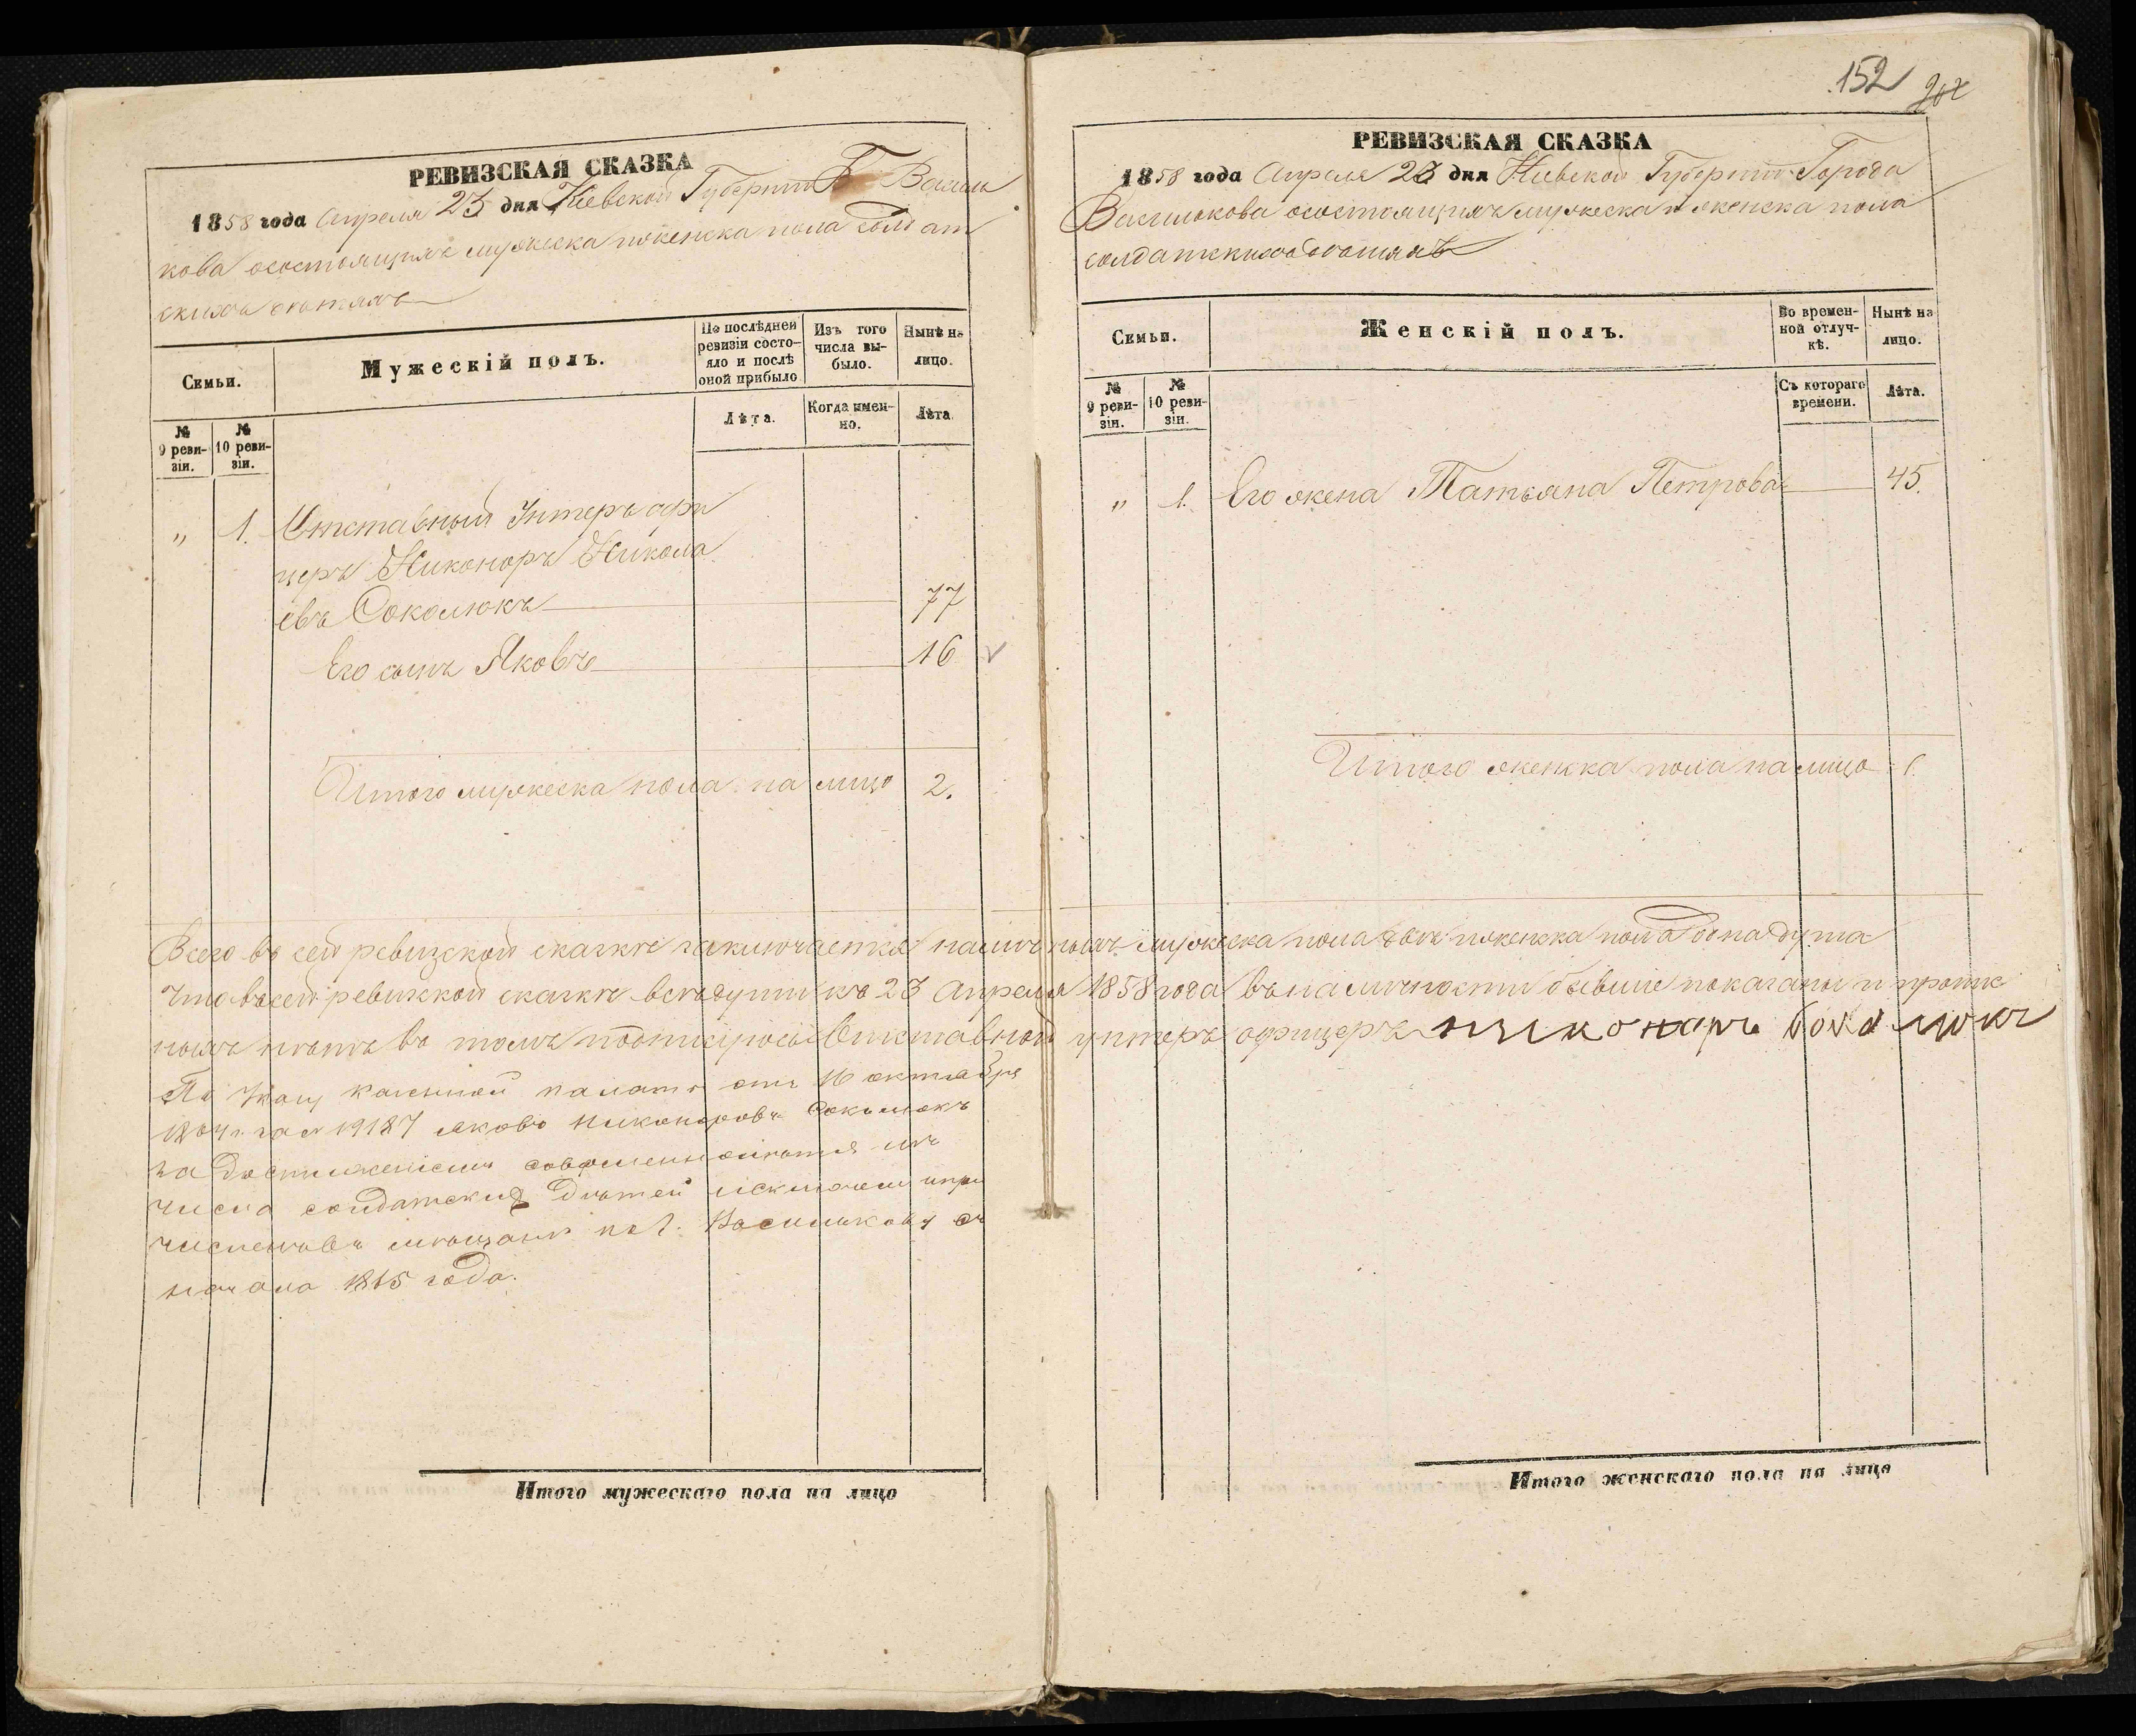 РЕВИЗСКАЯ СКАЗКА
1858 года Апреля 23 дня Кіевской Губерніи Г Василь
кова осостоящихъ мужеска иженска пола солдат
скихъ детяхъ
Семьи.
Мужескій полъ.
По послѣдней ревизіи состояло и послѣ оной прибыло
Изъ того числа выбыло.
Нынѣ на лицо.
Лѣта.
Когда именно.
Лѣта
№ 9 ревизіи.
№ 10 ревизіи.
" 1. Отставный Унтеръ офи
церъ Никоноръ Никола
евъ Соколюкъ 77
Его сынъ Яковъ 16
Итого мужеска пола на лицо 2.
152
РЕВИЗСКАЯ СКАЗКА
1858 года Апреля 23 дня Кіевской Губерніи Города
Василькова осостоящихъ мужеска и женска пола
солдатскихъ детяхъ
Семьи.
Женскій полъ.
Во временной отлучкѣ.
Нынѣ на лицо.
№ 9 ревизіи.
№ 10 ревизіи.
Съ котораго времени.
Лѣта.
" 1. Его жена Татьяна Петрова 45.
Итого женска пола на лицо 1.
Всего въ сей ревизской сказке заключается наличныхъ мужеска пола две иженска пола одна душа
Что въсей ревизской сказке все души къ 23 Апреля 1858 года въналичности бывшие показаны и пропис
ныхъ нетъ въ томъ подписуюсь Отставной унтеръ офицеръ никонаръ Соколюкъ
По Указу казенной палаты отъ 16 октября
1864 г. за № 19187 Яковъ Никоноровъ Соколюкъ
за достиженіемъ совершеннолетія изъ
числа солдатскихъ детей исключенъ и при
численъ въ мещане по г. Василькову съ
начала 1865 года.
Итого мужескаго пола на лицо
Итого женскаго пола на лицо